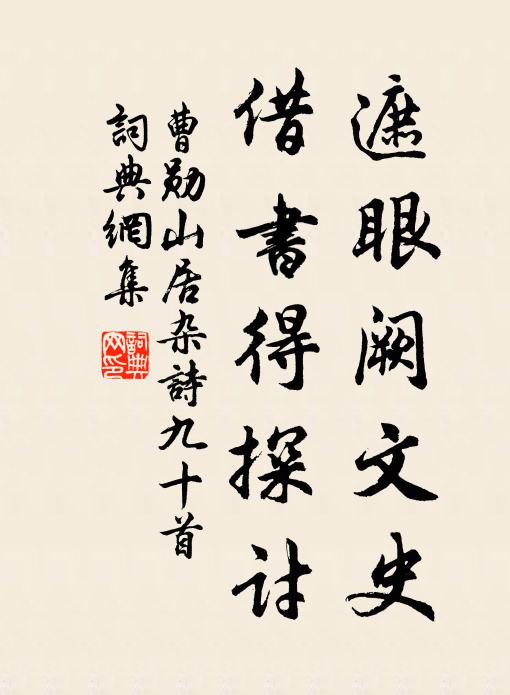 遮眼阙文史
借書得探討
曹勋山居杂詩九十首
詞典網集
詞典网印